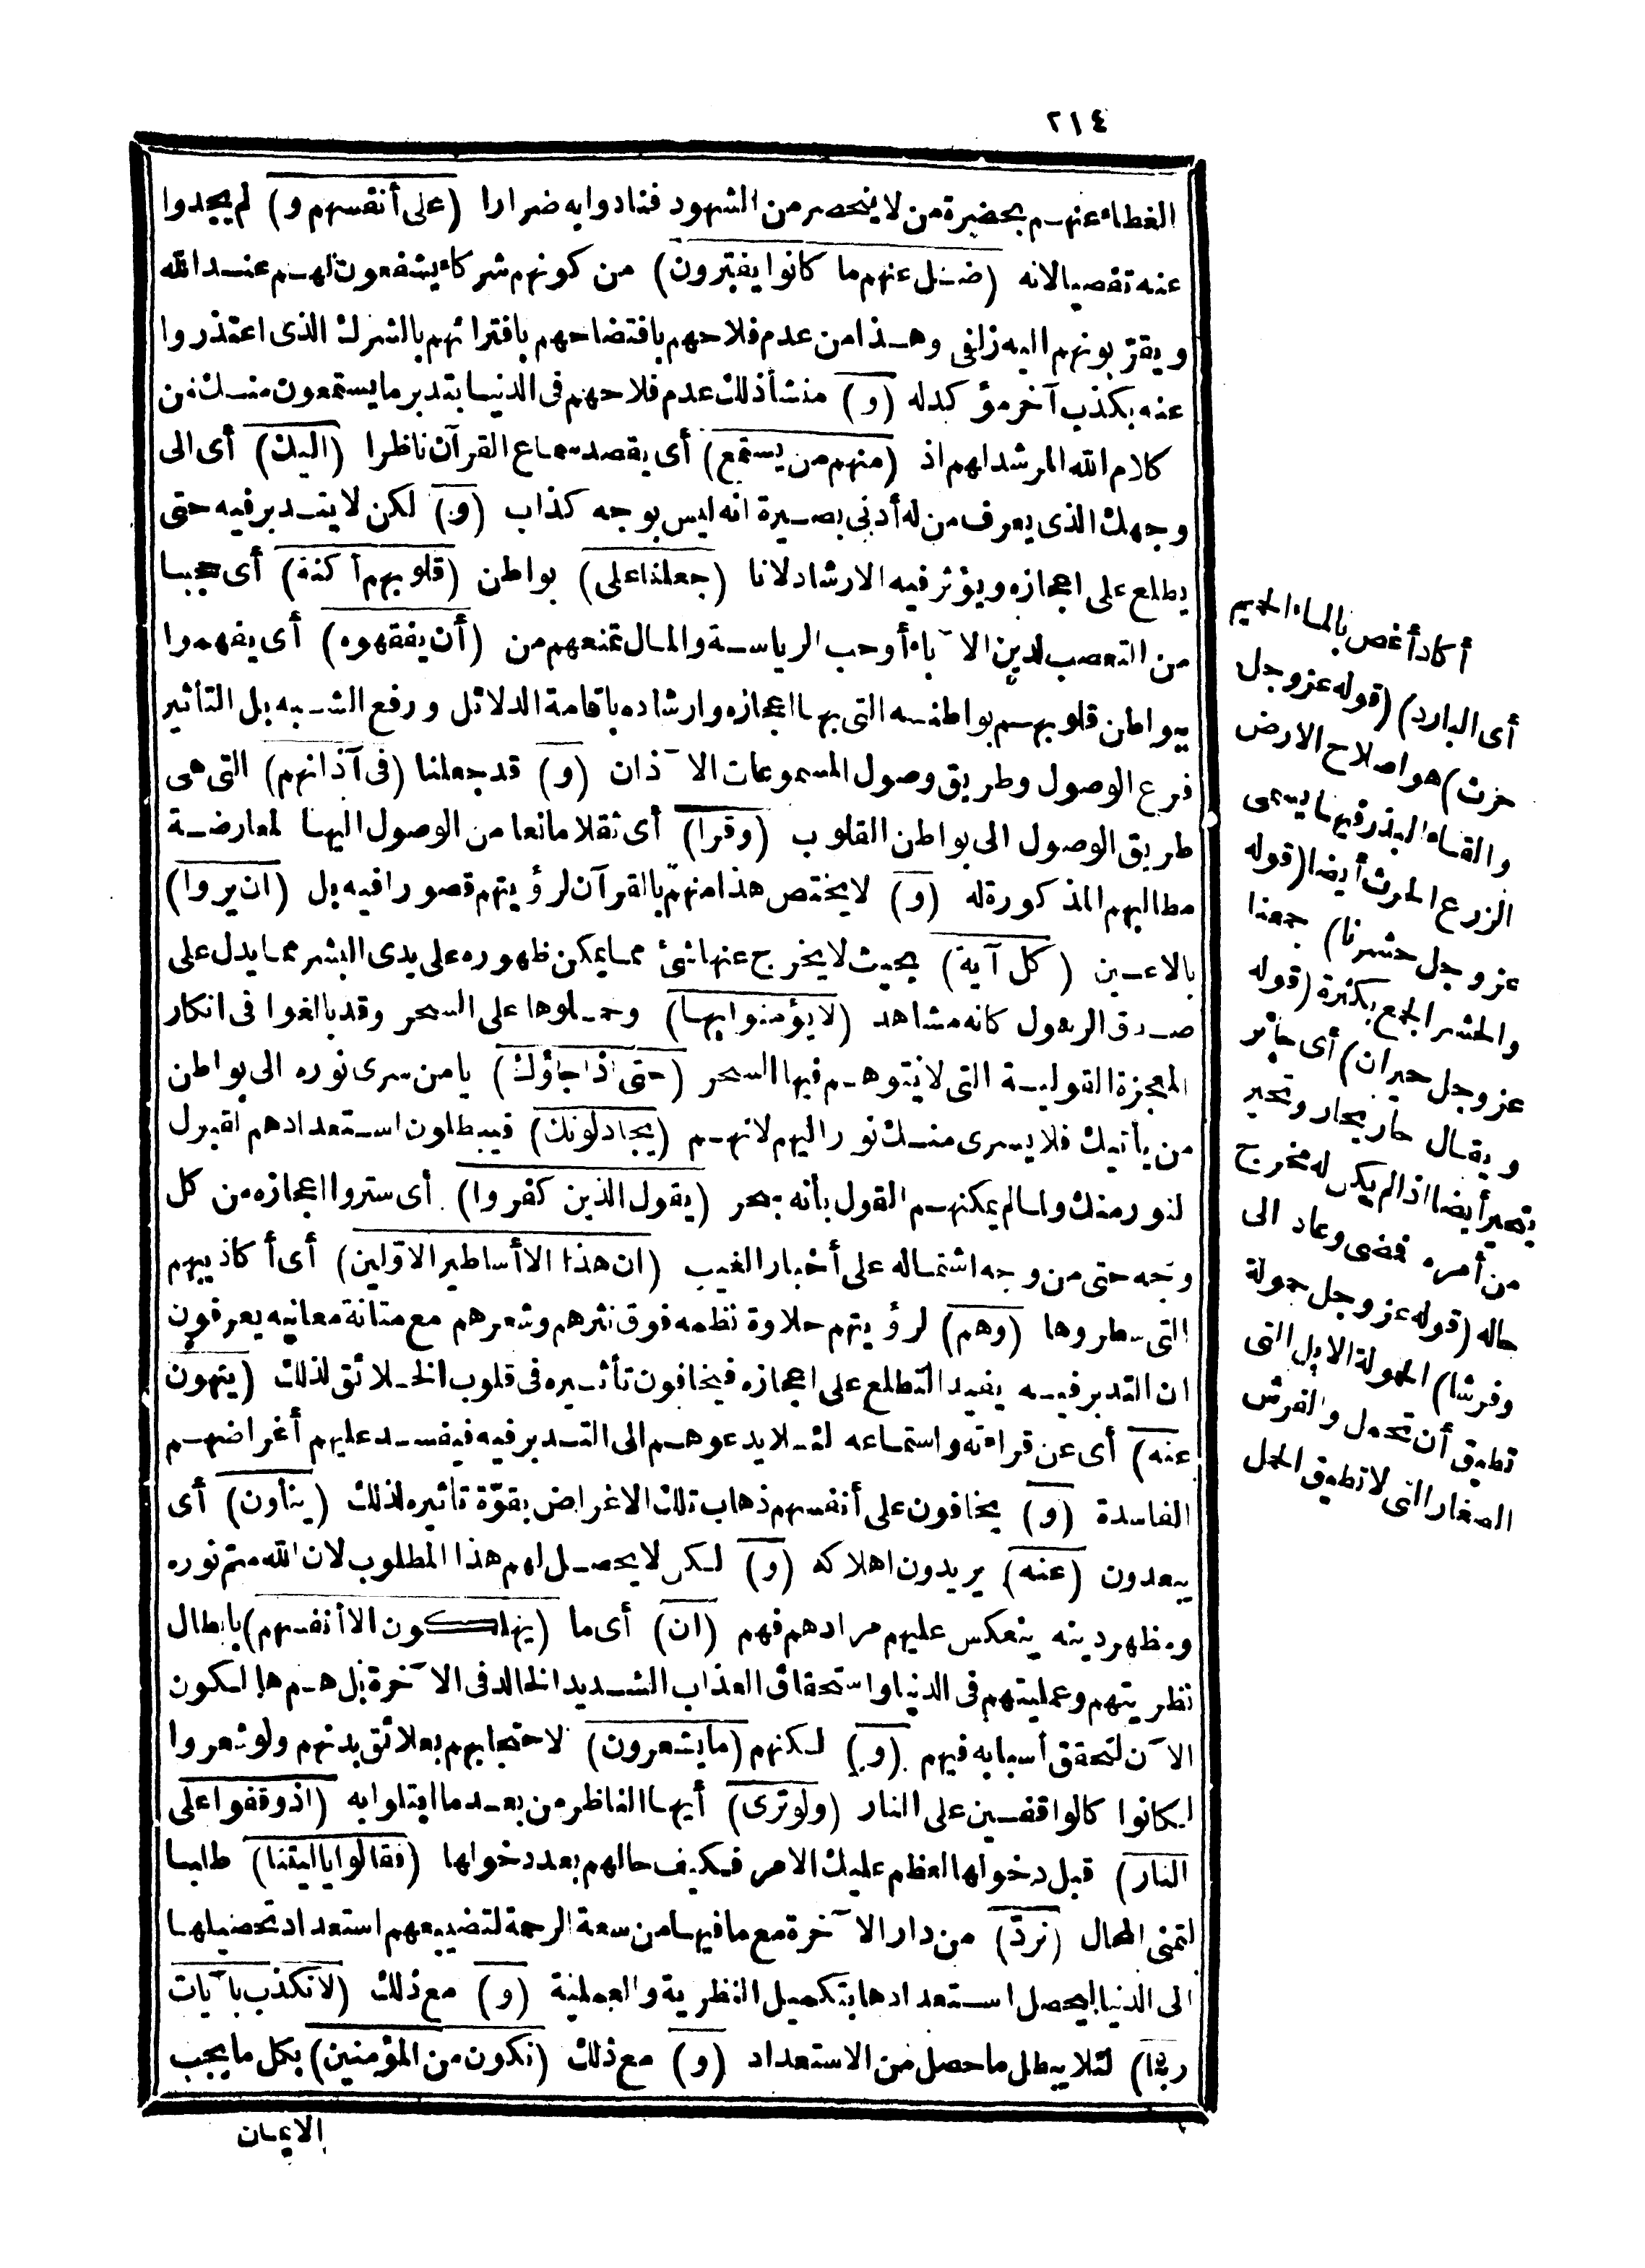 ٢١٤
الغطاء عنهم بحضرة من لا ينحصر من الشهود فنادوا به ضرارا (على أنفسهم و) لم يجدوا
عنه تفصيا لانه (ضل عنهم ما كانوا يفترون) من كونهم شركاء يشفعون لهم عند الله
ويقرّبونهم اليه زلفى وهذا من عدم فلاحهم بافتضاحهم بافترائهم بالشرك الذى اعتذروا
عنه بكذب آخر مؤكد له (و) منشأ ذلك عدم فلاحهم فى الدنيا بتدبر ما يستمعون منك من
كلام الله المرشد لهم اذ (منهم من يستمع) أى يقصد سماع القرآن ناظرا (اليك) أى الى
وجهك الذى يعرف من له أدنى بصيرة انه ليس بوجه كذاب (و) لكن لا يتدبر فيه حتى
يطلع على اعجازه ويؤثر فيه الارشاد لانا (جعلنا على) بواطن (قلوبهم أكنة) أى حجبا
من التعصب لدين الآباء أو حب الرياسة والمال تمنعهم من (أن يفقهوه) أى يفهموا
ببواطن قلوبهم بواطنه التى بها اعجازه وارشاده باقامة الدلائل ورفع الشبه بل التأثير
فرع الوصول وطريق وصول المسموعات الآذان (و) قد جعلنا (فى آذانهم) التى هى
طريق الوصول الى بواطن القلوب (وقرا) أى ثقلا مانعا من الوصول اليها لمعارضة
مطالبهم المذكورة له (و) لا يختص هذا منهم بالقرآن لرؤيتهم قصورا فيه بل (ان يروا)
بالاعين (كل آية) بحيث لا يخرج عنها شئ مما يمكن ظهوره على يدى البشر مما يدل على
صدق الرسول كانه مشاهد (لا يؤمنوا بها) وحملوها على السحر وقد بالغوا فى انكار
المعجزة القولية التى لا يتوهم فيها السحر (حتى اذا جاؤك) يا من سرى نوره الى بواطن
من يأتيك فلا يسرى منك نور اليهم لانهم (يجادلونك) فيبطلون استعدادهم لقبول
لنور منك ولما لم يمكنهم القول بأنه سحر (يقول الذين كفروا) أى ستروا اعجازه من كل
وجه حتى من وجه اشتماله على أخبار الغيب (ان هذا الا أساطير الاوّلين) أى أكاذيبهم
التى سطروها (وهم) لرؤيتهم حلاوة نظمه فوق نثرهم وشعرهم مع متانة معانيه يعرفون
ان التدبر فيه يفيد التطلع على اعجازه فيخافون تأثيره فى قلوب الخلائق لذلك (ينهون
عنه) أى عن قراءته واستماعه لئلا يدعوهم الى التدبر فيه فيفسد عليهم أغراضهم
الفاسدة (و) يخافون على أنفسهم ذهاب تلك الاغراض بقوّة تأثيره لذلك (ينأون) أى
يبعدون (عنه) يريدون اهلاكه (و) لكن لا يحصل لهم هذا المطلوب لان الله متم نوره
ومظهر دينه ينعكس عليهم مرادهم فهم (ان) أى ما (يهلكون الا أنفسهم) بابطال
نظريتهم وعمليتهم فى الدنيا واستحقاق العذاب الشديد الخالد فى الآخرة بل هم هالكون
الآن لتحقق أسبابه فيهم (و) لكنهم (ما يشعرون) لاحتجابهم بعلائق بدنهم ولو شعروا
لكانوا كالواقفين على النار (ولو ترى) أيها الناظر من بعد ما ابتلوا به (اذ وقفوا على
النار) قبل دخولها لعظم عليك الامر فكيف حالهم بعد دخولها (فقالوا ياليتنا) طلبا
لتمنى المحال (نردّ) من دار الآخرة مع ما فيها من سعة الرحمة لتضييعهم استعداد تحصيلها
الى الدنيا ليحصل استعدادها بتكميل النظرية والعملية (و) مع ذلك (لا نكذب بآيات
ربنا) لئلا يبطل ما حصل من الاستعداد (و) مع ذلك (نكون من المؤمنين) بكل ما يجب
الايمان
أكاد أغص بالماء الحميم
أى البارد) (قوله عز وجل
حرث) هو اصلاح الارض
والقاء البذر فيها يسمى
الزرع الحرث أيضا (قوله
عز وجل حشرنا) جمعنا
والحشر الجمع بكثرة (قوله
عز وجل حيران) أى حائر
ويقال حار يحار وتحير
يتحير أيضا اذا لم يكن له مخرج
من أمره فمضى وعاد الى
حاله (قوله عز وجل حمولة
وفرشا) الحمولة الابل التى
تطيق أن تحمل والفرش
الصغار التى لا تطيق الحمل